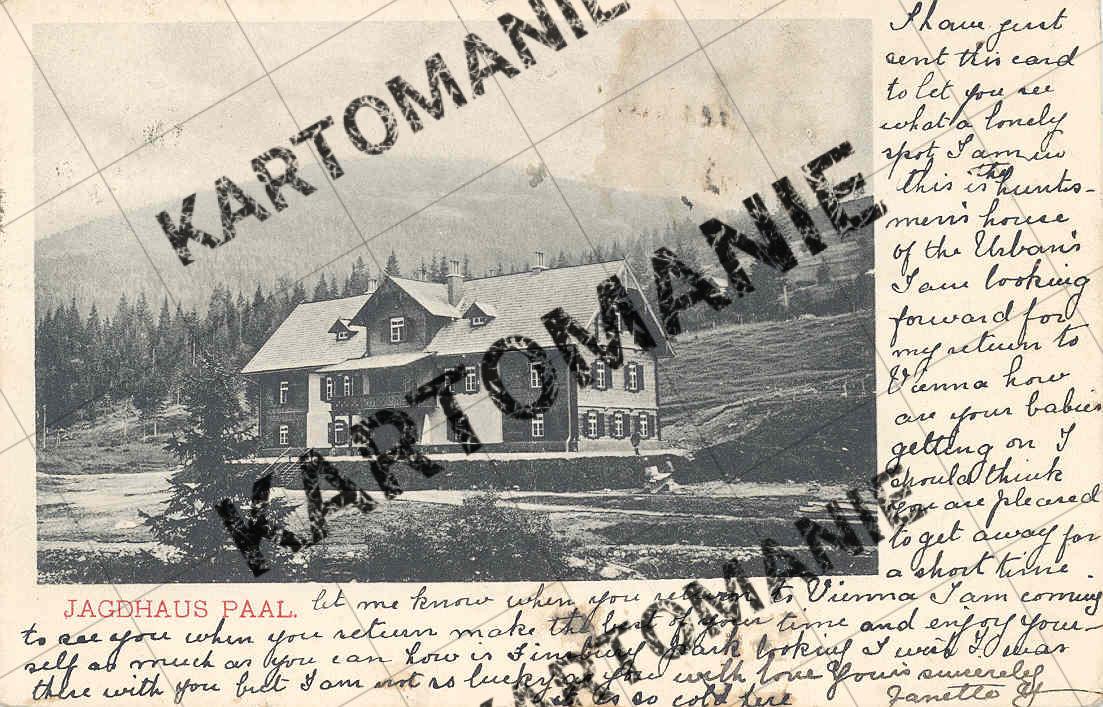 I have just
sent this card
to let you see
what a lonely
spot I am in
this is the hunts-
men's house
of the Urban's
I am looking
forward for
my return to
Vienna how
are your babies
getting on I
should think
you are pleased
to get away for
a short time.
JAGDHAUS PAAL. let me know when you return to Vienna I am coming
to see you when you return make the best of your time and enjoy your-
self as much as you can how is Finsbury Park looking I wish I was
there with you but I am not so lucky as you with love Yours sincerely
it is so cold here Janette
KARTOMANIE
KARTOMANIE
KARTOMANIE
KARTOMANIE